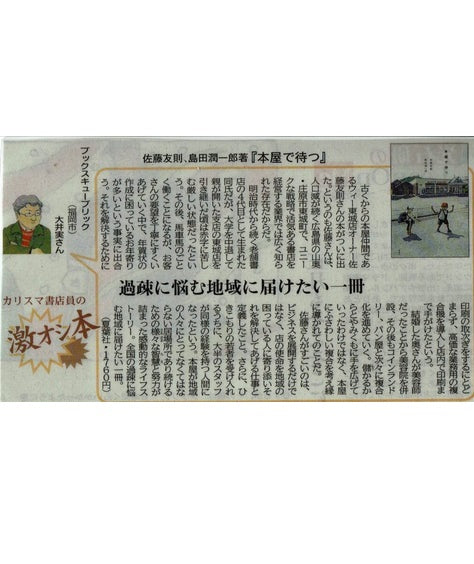 佐藤友則、島田潤一郎著『本屋で待つ』
過疎に悩む地域に届けたい一冊
本屋で待つ
古くからの本屋仲間であ
るウィー東城店オーナー佐
藤友則さんの本がついに出
た。というのも佐藤さんは、
人口減が続く広島県の山奥
・庄原市東城町で、ユニー
クな戦略で活気ある書店を
経営する業界では広く知ら
れた存在だからだ。
明治時代から続く老舗書
店の4代目として生まれた
同氏だが、大学を中退して
親が開いた支店の東城店を
引き継いだ頃は赤字に苦し
む厳しい状態だったとい
う。その後、馬車馬のごと
く働くことになるが、お客
さんの要望を丁寧にすくい
あげていく中で、年賀状の
作成に困っているお年寄り
が多いという事実に出合
う。それを解決するために
印刷の取次ぎをするにとど
まらず、高価な業務用の複
合機を導入し店内で印刷ま
で手がけたという。
結婚した奥さんが美容師
だったことから美容院を併
設、その後もコインランド
リー、パン屋と次々に複合
化を進めていく。儲かるか
らとやみくもに手を広げて
いったわけではなく、本屋
にふさわしい複合を考え縁
に導かれてのことだ。
佐藤さんがすごいのは、
ビジネスを展開するだけで
はなく、店の使命を地域の
困っている人に寄り添いそ
れを解決してあげる仕事と
定義したこと。さらに、ひ
きこもりの若者を受け入れ
るうちに、大半のスタッフ
が同様の経験を持つ人間に
なったという。本屋が地域
の人々にとってなくてはな
らない居場所であり続ける
ための様々な智慧と努力が
詰まった感動的なライフス
トーリー。全国の過疎に悩
む地域に届けたい一冊。
（夏葉社・1760円）
ブックスキューブリック
（福岡市）
大井実さん
カリスマ書店員の
激オシ本